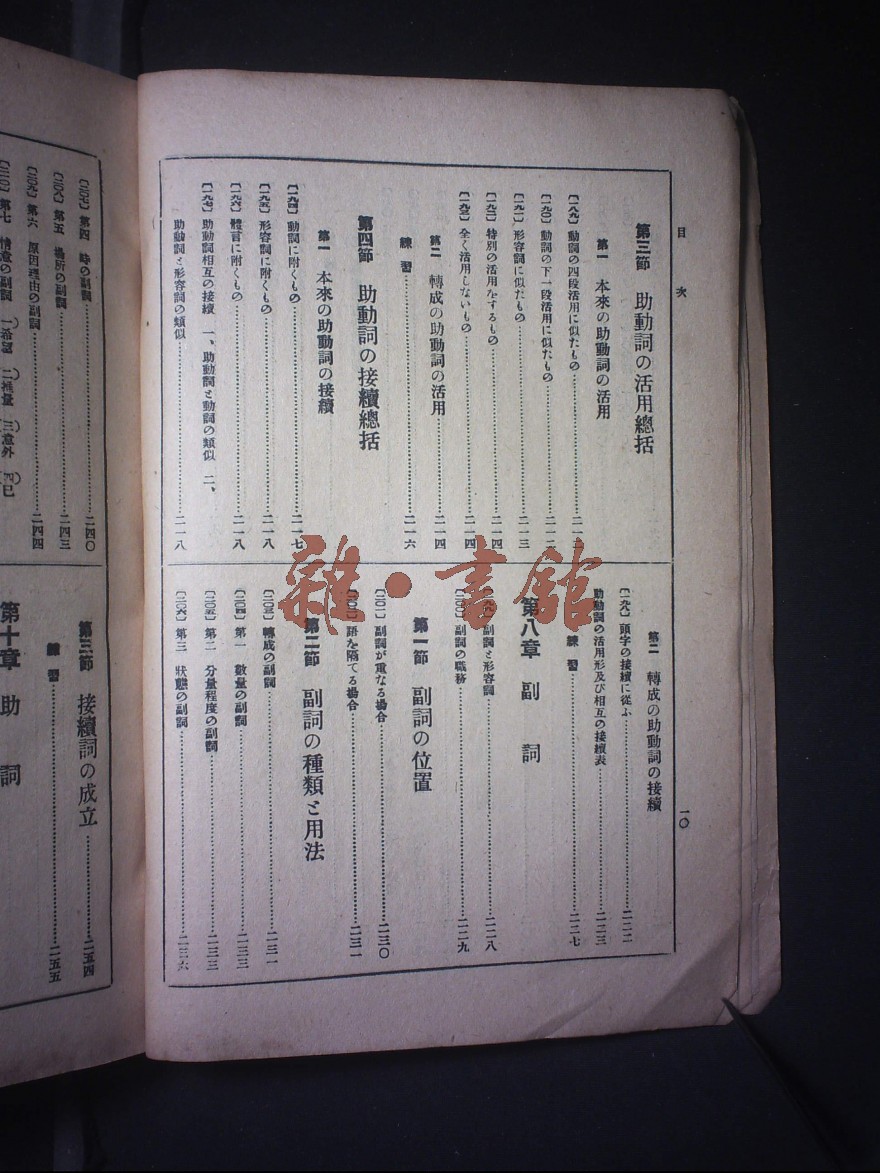 目次
一〇
第三節 助動詞の活用總括
第一 本來の助動詞の活用
〔一八九〕動詞の四段活用に似たもの……二一三
〔一九〇〕動詞の下一段活用に似たもの……二一三
〔一九一〕形容詞に似たもの……二一三
〔一九二〕特別の活用をするもの……二一四
〔一九三〕全く活用しないもの……二一四
第二 轉成の助動詞の活用……二一四
練習……二一六
第四節 助動詞の接續總括
第一 本來の助動詞の接續
〔一九四〕動詞に附くもの……二一七
〔一九五〕形容詞に附くもの……二一八
〔一九六〕體言に附くもの……二一八
〔一九七〕助動詞相互の接續 一、助動詞と動詞の類似 二、
助動詞と形容詞の類似……二一八
第二 轉成の助動詞の接續
〔一九八〕頭字の接續に從ふ……二二二
助動詞の活用形及び相互の接續表……二二三
練習……二二七
第八章 副詞
副詞と形容詞……二二八
〔二〇〇〕副詞の職務……二二九
第一節 副詞の位置
〔二〇一〕副詞が重なる場合……二三〇
〔二〇二〕語を隔てる場合……二三一
第二節 副詞の種類と用法
〔二〇三〕轉成の副詞……二三一
〔二〇四〕第一 數量の副詞……二三三
〔二〇五〕第二 分量程度の副詞……二三三
〔二〇六〕第三 狀態の副詞……二三六
〔二〇七〕第四 時の副詞……二四〇
〔二〇八〕第五 場所の副詞……二四三
〔二〇九〕第六 原因理由の副詞……二四四
〔二一〇〕第七 情意の副詞 (一)希望 (二)推量 (三)意外 (四)已
第三節 接續詞の成立……二五四
練習……二五五
第十章 助詞
雜·書館